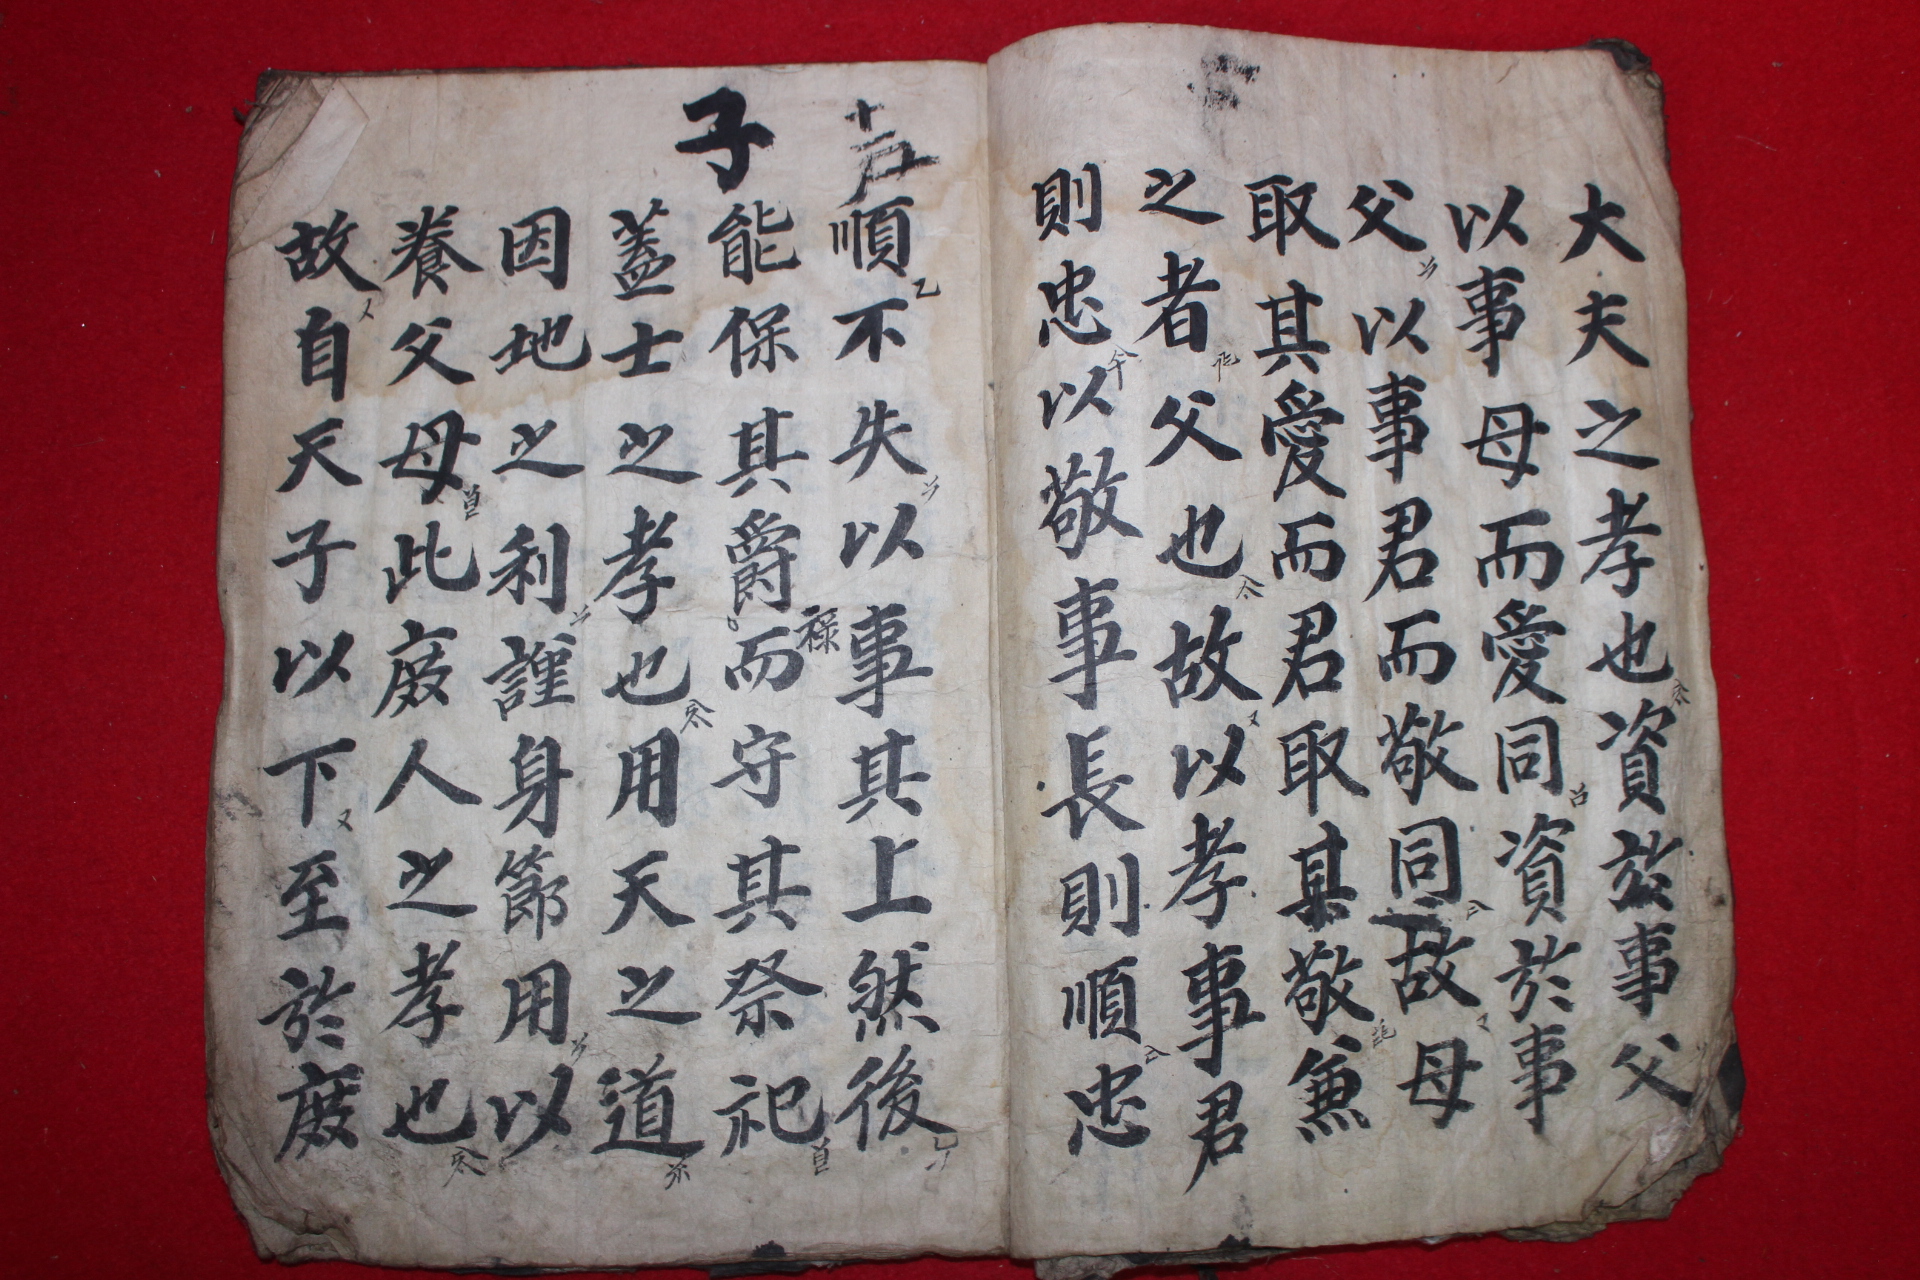 大夫之孝也資玆事父
以事母而愛同資於事
父以事君而敬同故母
取其愛而君取其敬兼
之者父也故以孝事君
則忠以敬事長則順忠
順不失以事其上然後
子
能保其爵禄而守其祭祀
蓋士之孝也用天之道
因地之利謹身節用以
養父母此庶人之孝也
故自天子以下至於庶